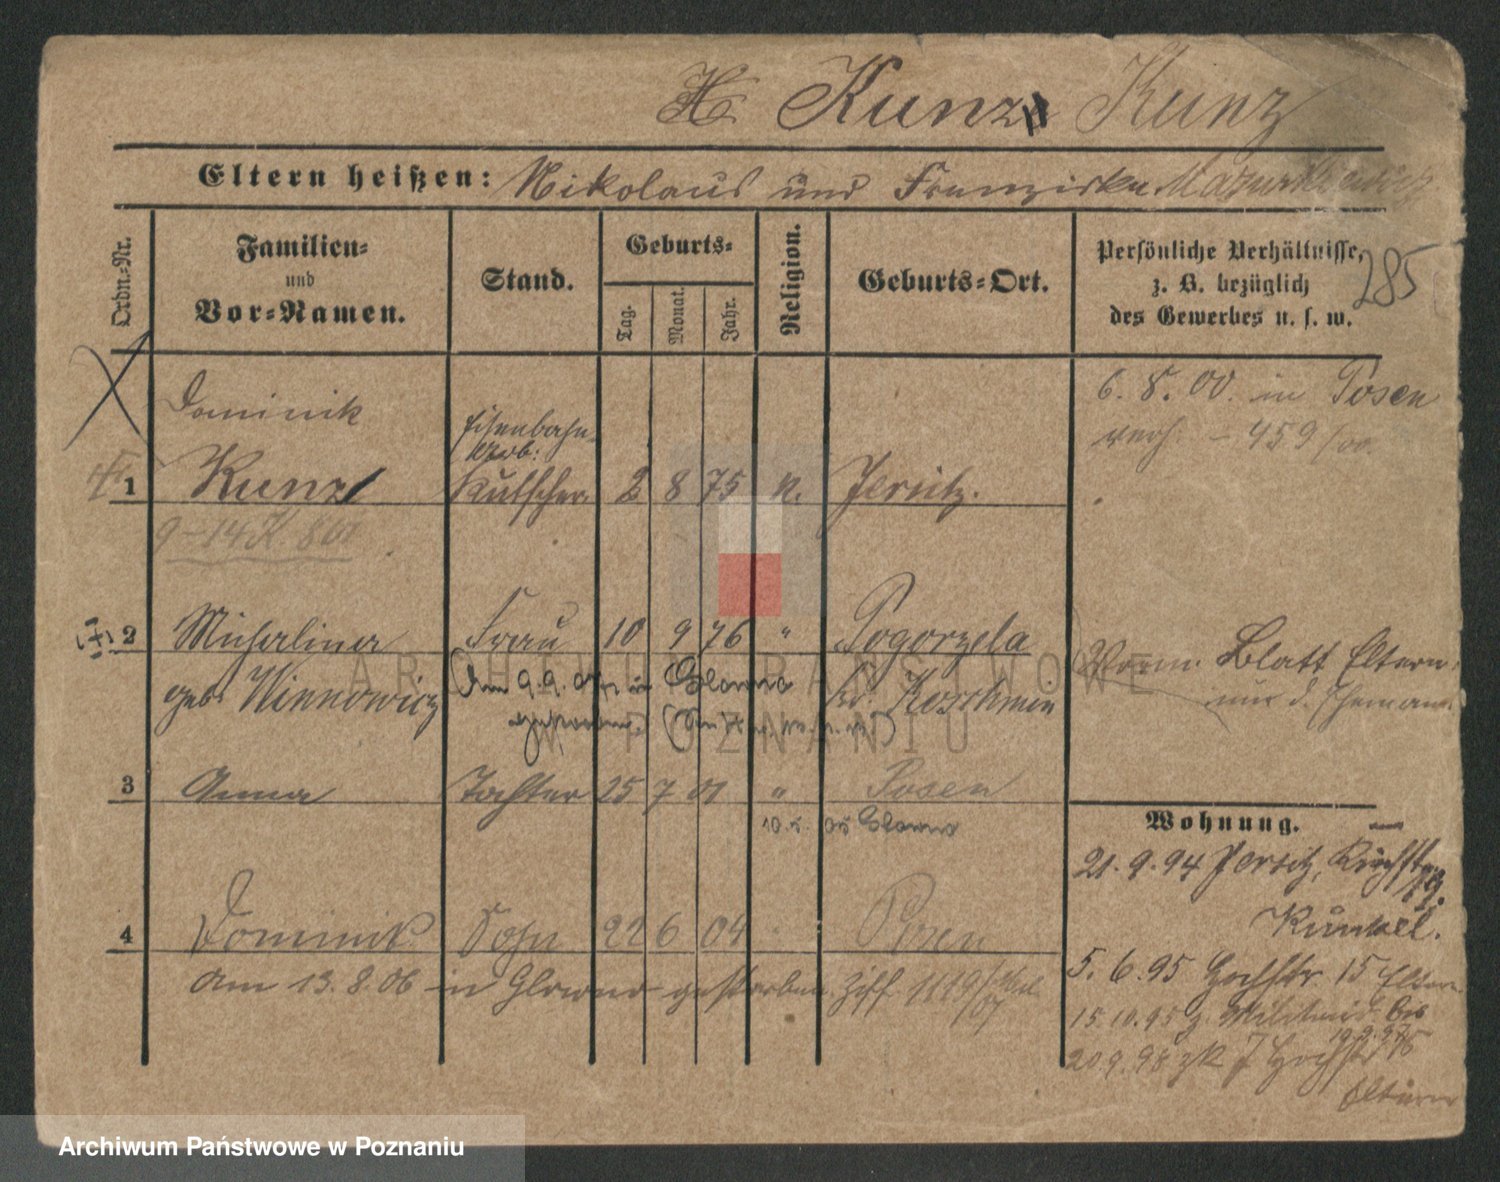 Kunz Kunz
Eltern heißen: Nikolaus und Franziska
Ordn.-Nr.
Familien-
und
Vor-Namen.
Stand.
Geburts-
Tag.
Monat.
Jahr.
Religion.
Geburts-Ort.
Persönliche Verhältnisse,
z. B. bezüglich
des Gewerbes u. s. w.
285
Dominik
Eisenbahn-
Arb:
1 Kunz Kutscher 2 8 75 k. Jersitz.
6. 8. 00. in Posen
verh. - 459/00.
2 Michalina Frau 10 9 76 " Pogorzela
geb. Kr. Koschmin
Am 9.9. in Glowno
gestorben.
Vorm. Blatt Eltern
nur d. Ehemann
3 Anna Tochter 25 7 01 " Posen
10. 5. 05 Glowno
4 Dominik Sohn 22 6 04 Posen
Am 13.8.06 in Glowno gestorben. Ziff 1119/
Wohnung.
21.9.94 Jersitz, Kirchstr
5. 6. 95 Hochstr. 15 Eltern
15.10.95 z. Militair d. bis
19.9.97
20.9.98 zk J Hochstr 15
Eltern
ARCHIWUM PAŃSTWOWE
W POZNANIU
Archiwum Państwowe w Poznaniu